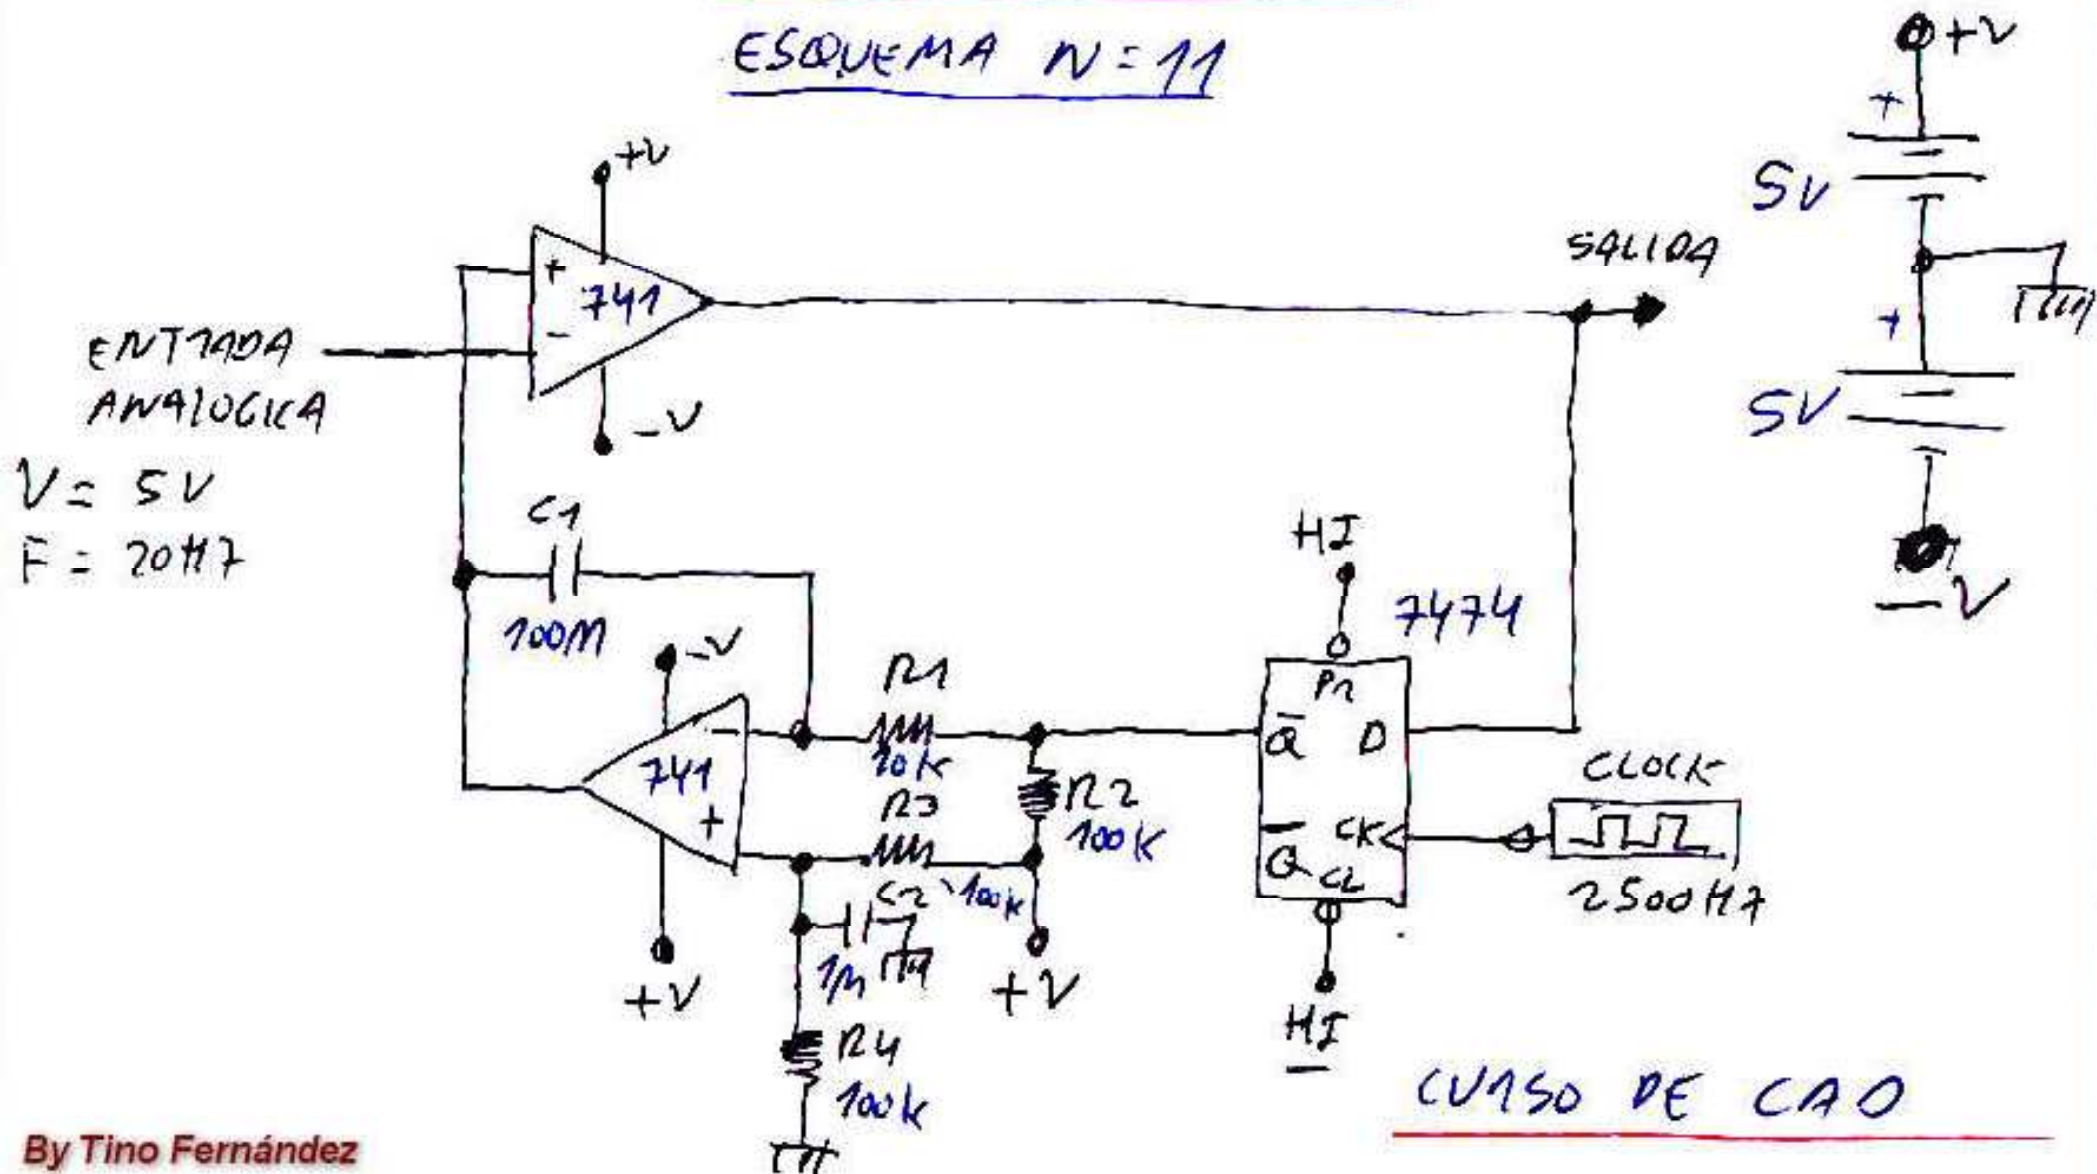 ESQUEMA N=11
+V
+
5V
+
5V
-V
+V
+
741
-
-V
ENTRADA
ANALOGICA
V= 5V
F= 20HZ
SALIDA
C1
100M
-V
-
741
+
+V
R1
10K
R3
100K
R2
100K
+V
C2
1M
R4
100K
HI
7474
Pr
Q D
CK
Q
CL
HI
CLOCK
2500HZ
CURSO DE CAO
By Tino Fernández